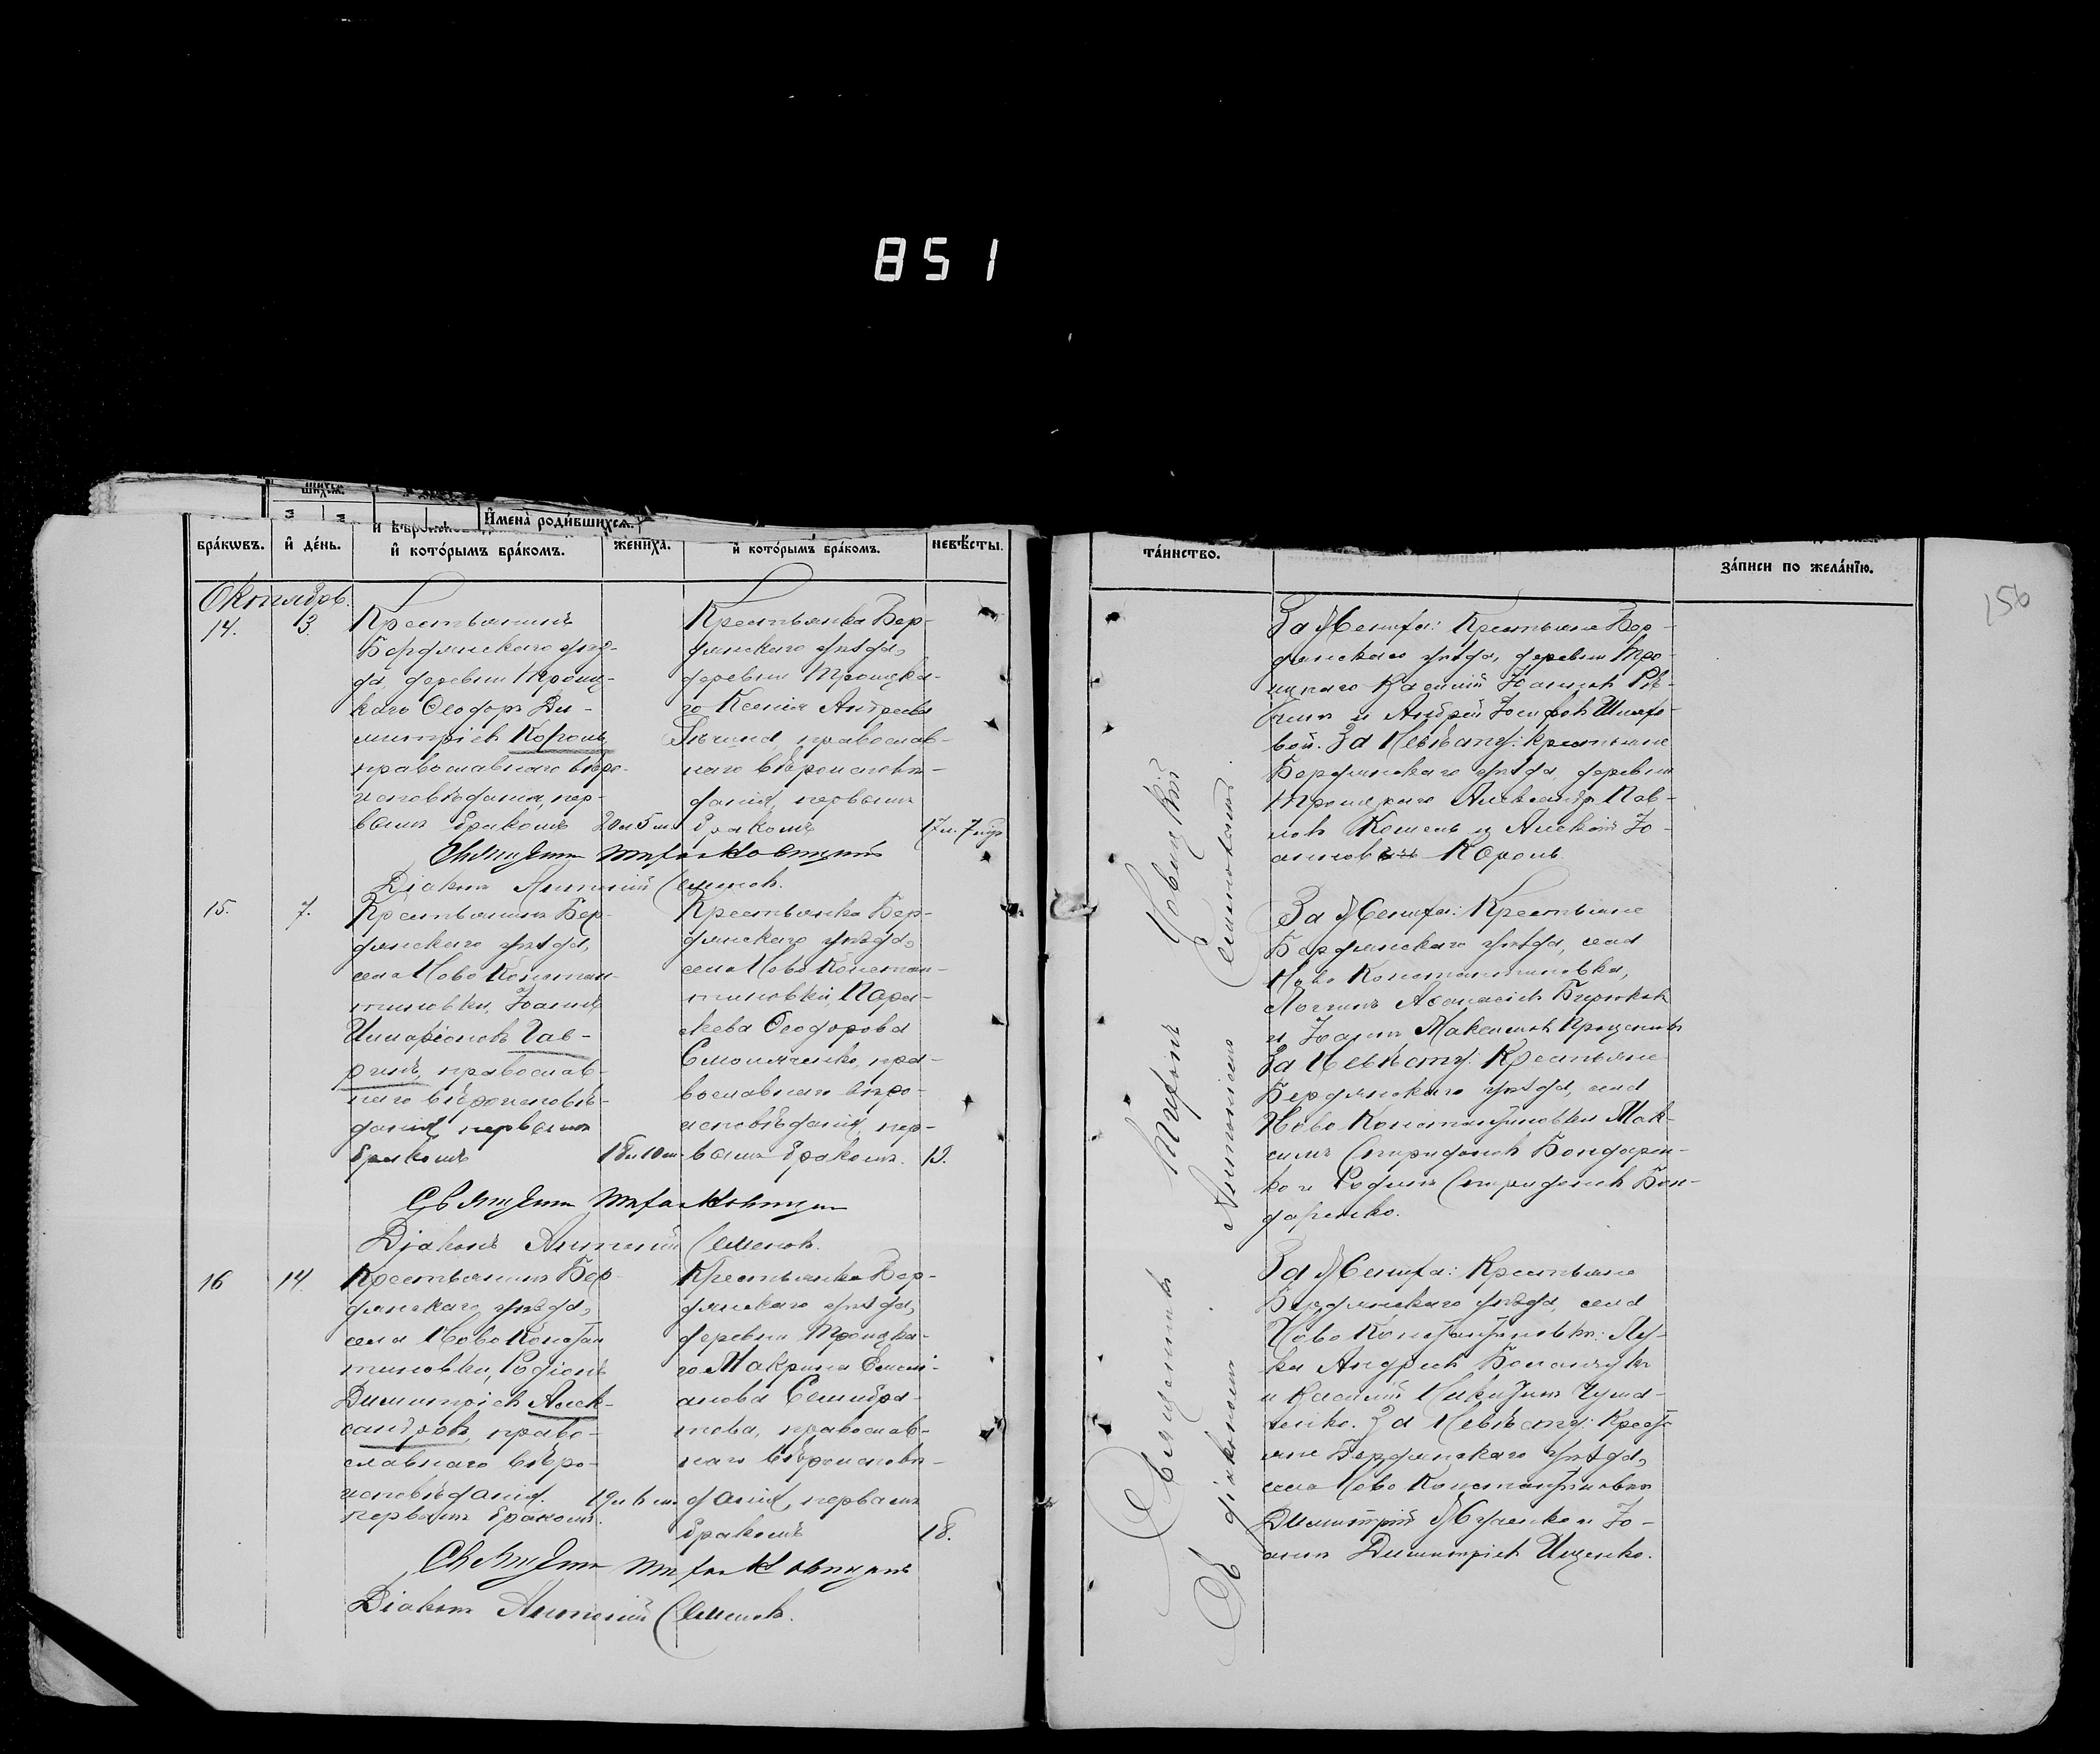 851
шихсѧ.
Имена родившихсѧ.
бракѡвъ.
и день.
и которымъ бракомъ.
жениха.
и которымъ бракомъ.
невѣсты.
Октябрь.
14.
3.
Крестьянинъ
Бердянскаго уѣз-
да, деревни Троиц-
каго Ѳеодоръ Ди-
митріевъ Король
православнаго вѣро-
исповѣданія, пер-
вымъ бракомъ
20 л 5 м
Крестьянка Бер-
дянскаго уѣзда,
деревни Троицка-
го Ксенія Андреева
православ-
наго вѣроисповѣ-
данія, первымъ
бракомъ
17 л. 7 мѣс
Священникъ
Діаконъ Антоній Семеновъ.
15.
7.
Крестьянинъ Бер-
дянскаго уѣзда,
села Ново Констан-
тиновки, Іоаннъ
Иларіоновъ Гав-
ришъ, православ-
наго вѣроисповѣ-
данія, первымъ
бракомъ
18 л 10 м
Крестьянка Бер-
дянскаго уѣзда,
села Ново Констан-
тиновки, Парас-
кева Ѳеодорова
пра-
вославнаго вѣро-
исповѣданія, пер-
вымъ бракомъ.
Священникъ
Діаконъ Антоній Семеновъ.
16
14.
Крестьянинъ Бер-
дянскаго уѣзда,
села Ново Констан
тиновки, Родіонъ
Димитріевъ Алек-
сандровъ, право-
славнаго вѣро-
исповѣданія.
первымъ бракомъ.
19 л 6 м.
Крестьянка Бер-
дянскаго уѣзда,
деревни Троицка-
го Макрина Емелі-
анова Семибра-
това, православ-
наго вѣроисповѣ-
данія, первымъ
бракомъ
18.
Священникъ
Діаконъ Антоній Семеновъ.
таинство.
записи по желанїю.
150
Священникъ
Съ діакономъ Антоніемъ
За Жениха: Крестьяне Бер-
дянскаго уѣзда, деревни Тро-
ицкаго Василій Іоанновъ Рѣ-
и Андрей Іосифовъ
За Невѣсту: Крестьяне
Бердянскаго уѣзда, деревни
Троицкаго Александръ Пав-
ловъ и Алексій Іо-
анновъ Король
За Жениха: Крестьяне
Бердянскаго уѣзда, села
Ново Константиновки,
Логгинъ Аѳанасіевъ Бирюковъ
и Іоаннъ Максимовъ Проценковъ
За Невѣсту: Крестьяне
Бердянскаго уѣзда, села
Ново Константиновки Мак-
симъ Спиридоновъ Бондарен-
ко и Родіонъ Спиридоновъ Бон-
даренко.
За Жениха: Крестьяне
Бердянскаго уѣзда, села
Ново Константиновки: Лу-
ка Андреевъ
и Василій Никитинъ Чума-
ченко. За Невѣсту: Кресть
яне Бердянскаго уѣзда,
села Ново Константиновки
Димитрій и Іо-
аннъ Димитріевъ Ищенко.